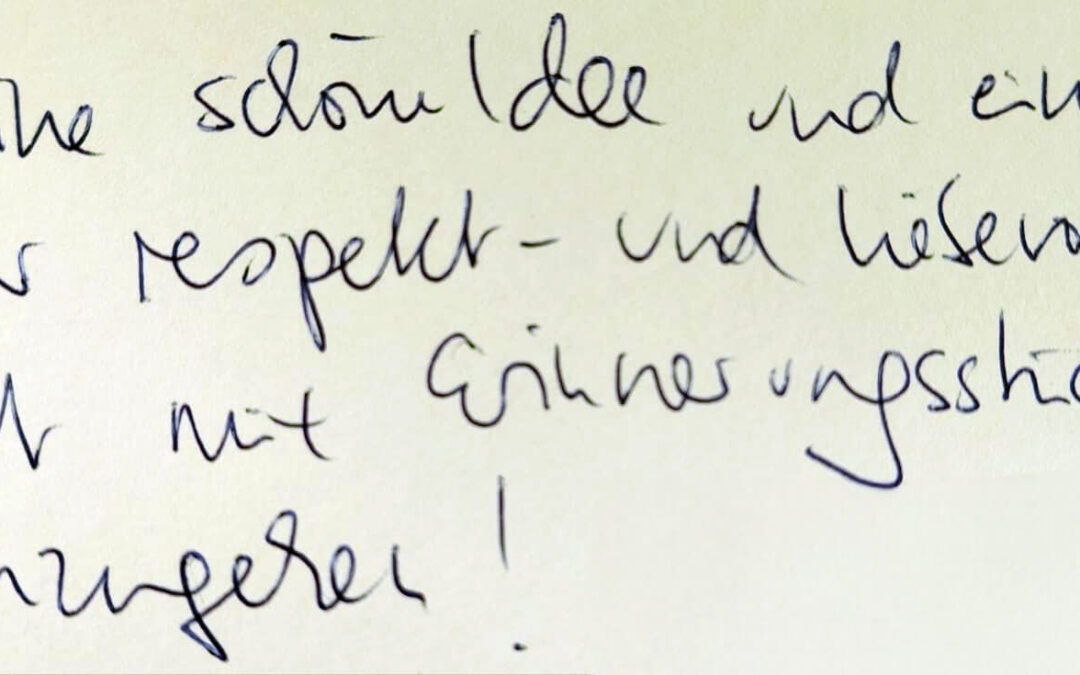 ine schöne Idee und ein
respekt- und liebevo
mit Erinnerungsstü
umzugehen!